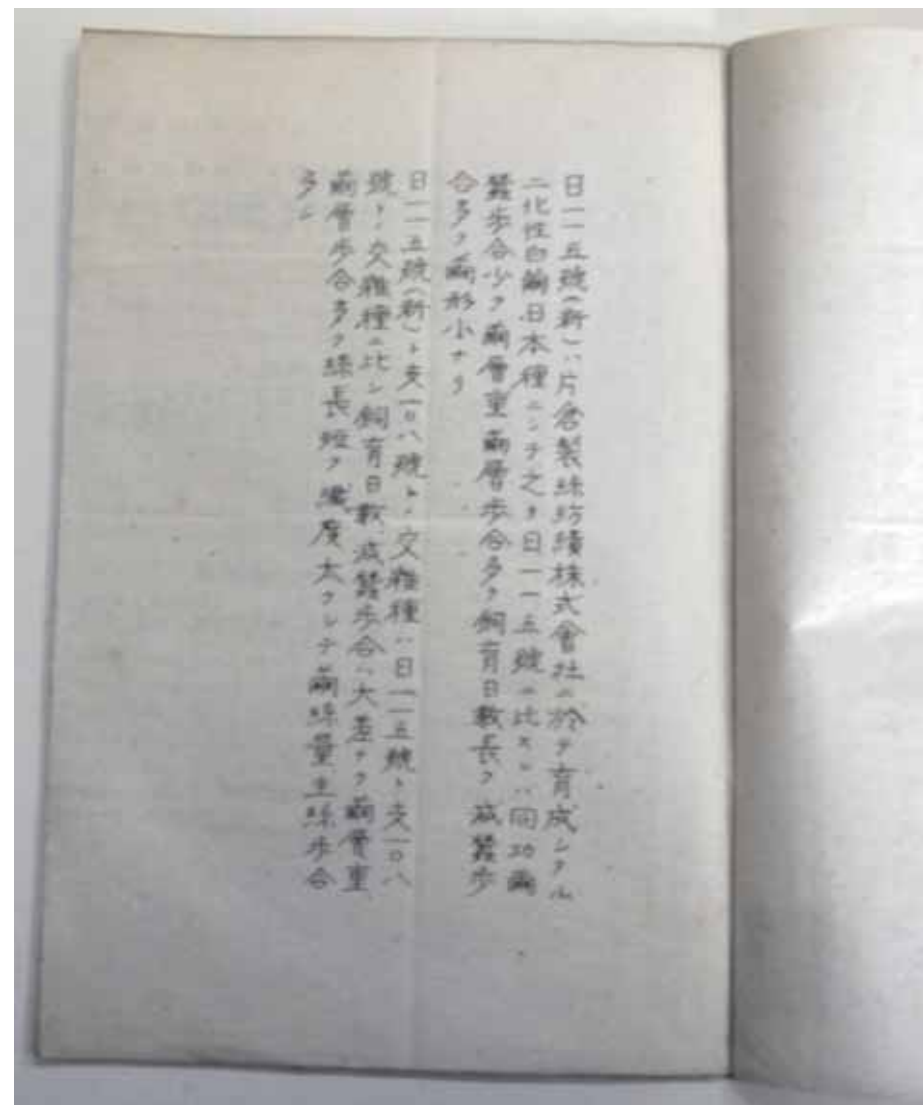 日一一五號(新)ハ片倉製絲紡績株式會社ニ於テ育成シタル
二化性白繭日本種ニシテ之ヲ日一一五號ニ比スレハ同功繭
蠶歩合少ク繭層重繭層歩合多ク飼育日數長ク減蠶歩
合多ク繭形小ナリ
日一一五號(新)ト支一〇八號トノ交雜種ハ日一一五號ト支一〇八
號トノ交雜種ニ比シ飼育日數、減蠶歩合ハ大差ナク繭層重
繭層歩合多ク絲長短ク纖度太クシテ繭絲量生絲歩合
多シ